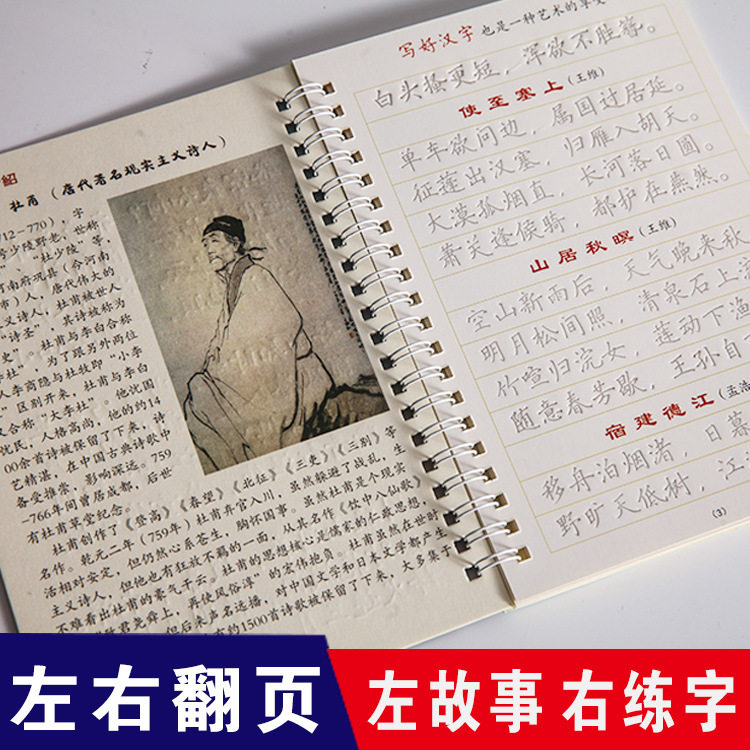 绍
杜甫（唐代著名现实主义诗人）
712-770），字
号少陵野老，世称
"、"杜少陵"等，
河南府巩县（今河南
市）人，唐代伟大的
义诗人，杜甫被世人
"诗圣"，其诗被称为
史"。杜甫与李白合称
李杜"，为了跟另外两位
人李商隐与杜牧即"小李
"区别开来，杜甫与李白
又合称"大李杜"。他忧国
忧民，人格高尚，他的约14
00余首诗被保留了下来，诗
艺精湛，在中国古典诗歌中
备受推崇，影响深远。759
-766年间曾居成都，后世
有杜甫草堂纪念。
杜甫创作了《登高》《春望》《北征》《三吏》《三别》等
名作。乾元二年（759年）杜甫弃官入川，虽然躲避了战乱，生
活相对安定，但仍然心系苍生，胸怀国事。虽然杜甫是个现实
主义诗人，但他也有狂放不羁的一面，从其名作《饮中八仙歌》
不难看出杜甫的豪气干云。杜甫的思想核心是儒家的仁政思想，
致君尧舜上，再使风俗淳"的宏伟抱负。杜甫虽然在世时
但后来声名远播，对中国文学和日本文学都产生
约1500首诗歌被保留了下来，大多集于
写好汉字 也是一种艺术的享受
白头搔更短，浑欲不胜簪。
使至塞上（王维）
单车欲问边，属国过居延。
征蓬出汉塞，归雁入胡天。
大漠孤烟直，长河落日圆。
萧关逢候骑，都护在燕然。
山居秋暝（王维）
空山新雨后，天气晚来秋
明月松间照，清泉石上
竹喧归浣女，莲动下渔
随意春芳歇，王孙自
宿建德江（孟浩
移舟泊烟渚，日暮
野旷天低树，江
（3）
左右翻页
左故事 右练字